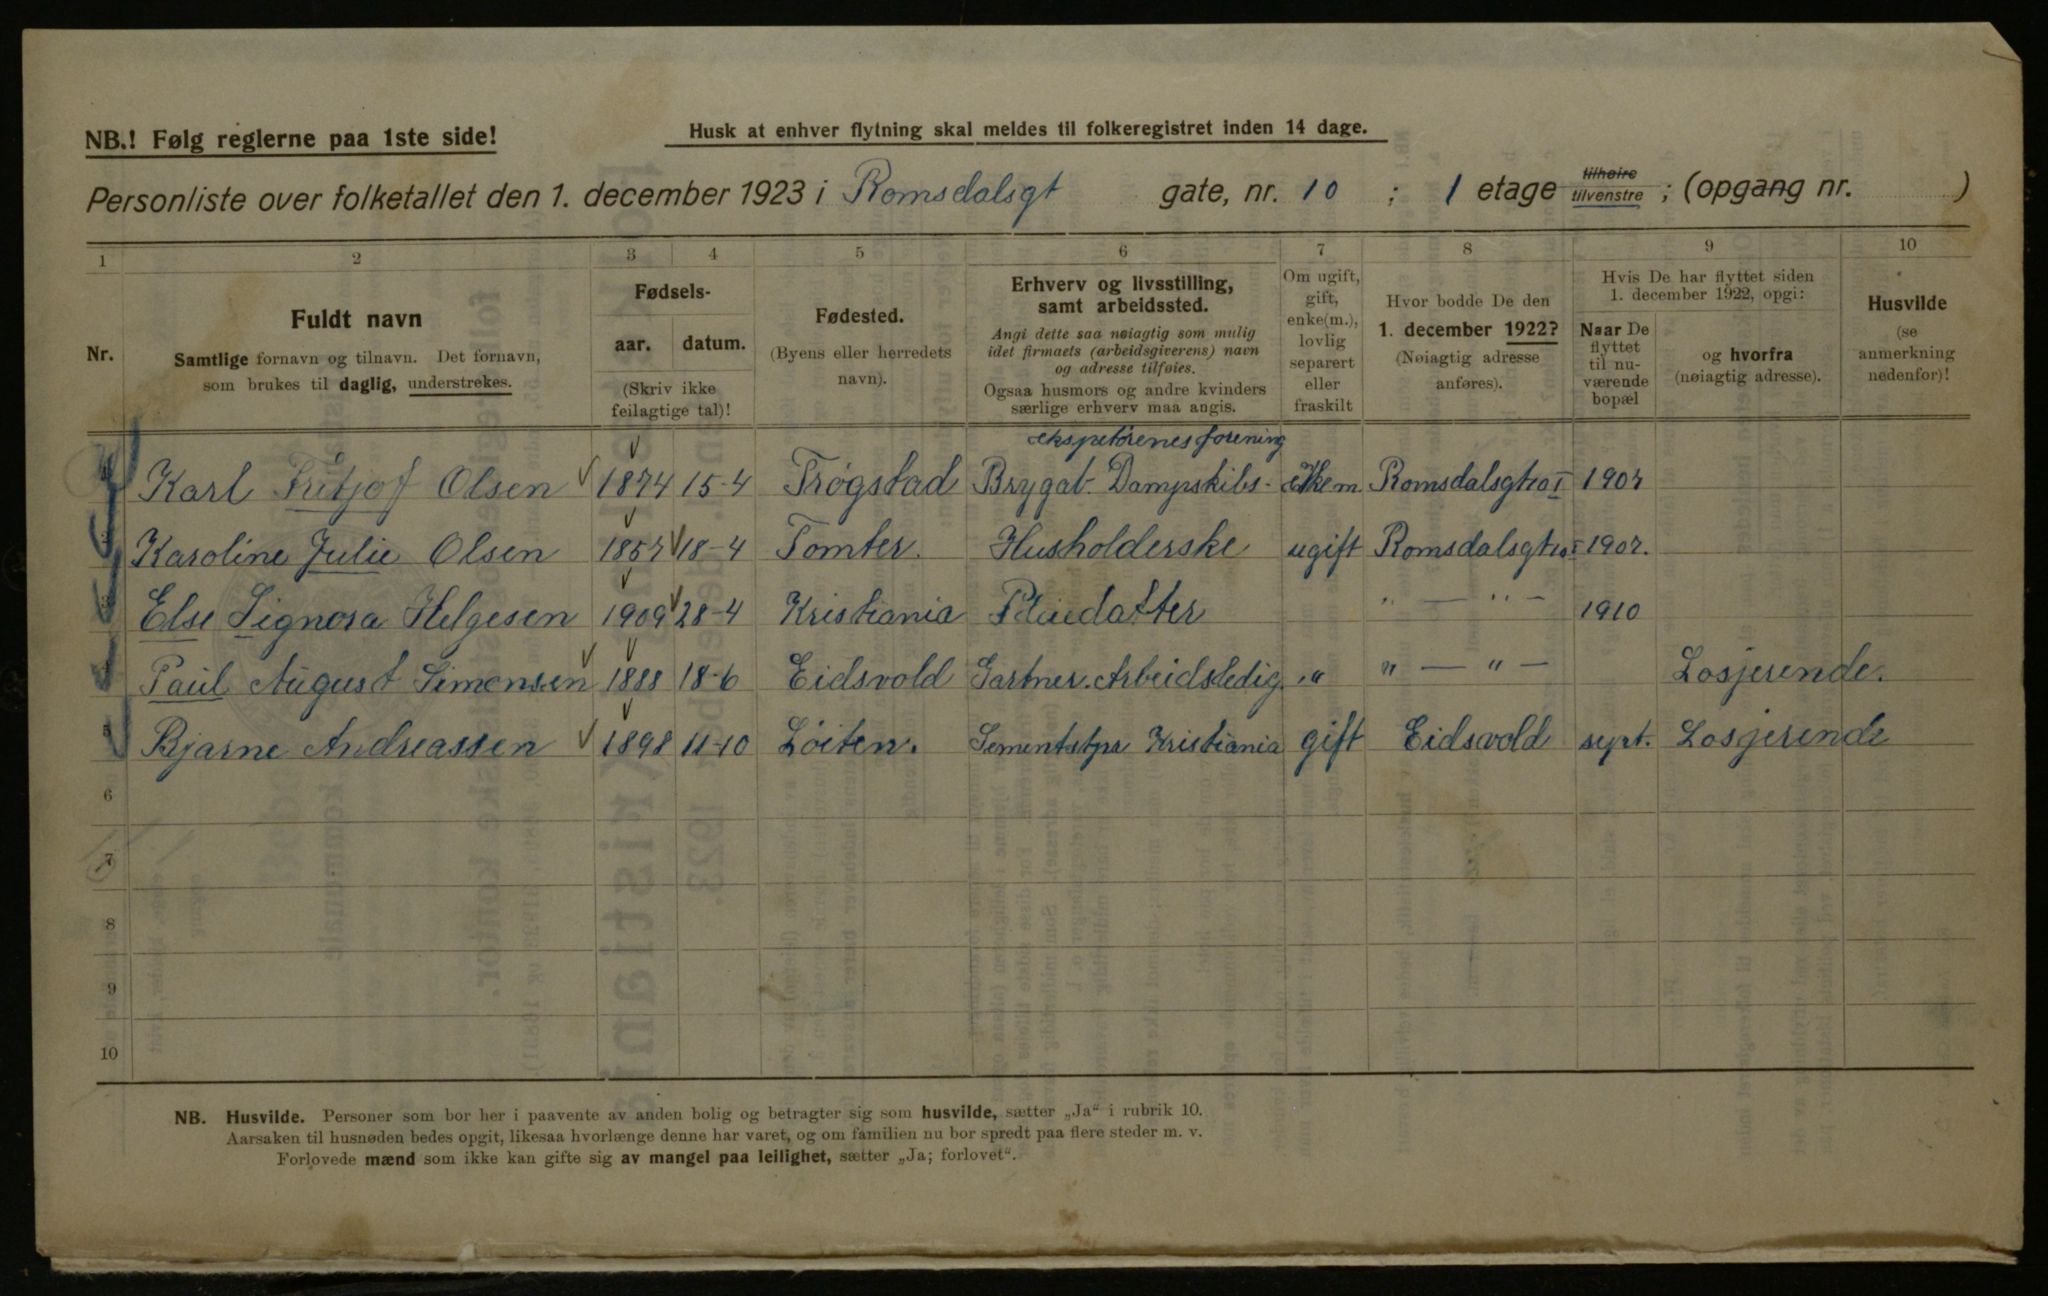 NB.! Følg reglerne paa 1ste side!
Husk at enhver flytning skal meldes til folkeregistret inden 14 dage.
Personliste over folketallet den 1. december 1923 i Romsdalsgt gate, nr. 10 ; 1 etage tilhøire tilvenstre ; (opgang nr. )
1 2 3 4 5 6 7 8 9 10
Nr.
Fuldt navn
Samtlige fornavn og tilnavn. Det fornavn,
som brukes til daglig, understrekes.
Fødsels-
aar. datum.
(Skriv ikke
feilagtige tal)!
Fødested.
(Byens eller herredets
navn).
Erhverv og livsstilling,
samt arbeidssted.
Angi dette saa nøiagtig som mulig
idet firmaets (arbeidsgiverens) navn
og adresse tilføies.
Ogsaa husmors og andre kvinders
særlige erhverv maa angis.
Om ugift,
gift,
enke(m.),
lovlig
separert
eller
fraskilt
Hvor bodde De den
1. december 1922?
(Nøiagtig adresse
anføres).
Hvis De har flyttet siden
1. december 1922, opgi:
Naar De
flyttet
til nu-
værende
bopæl
og hvorfra
(nøiagtig adresse).
Husvilde
(se
anmerkning
nedenfor)!
ekspetørenes forening
Karl Fritjof Olsen 1874 15-4 Trøgstad Brygab. Dampskibs- Romsdalsgt 10 I 1907
Karoline Julie Olsen 1857 18-4 Tomter. Husholderske ugift Romsdalsgt 10 I 1907.
Else Signora Helgesen 1909 28-4 Kristiania Pleiedatter " — " — 1910
Paul August Simensen 1888 18-6 Eidsvold Gartner. Arbeidsledig. " " — " — Losjerende.
5 Bjarne Andreassen 1898 11-10 Løiten. Sementstøper Kristiania gift Eidsvold sept. Losjerende
6
7
8
9
10
NB. Husvilde. Personer som bor her i paavente av anden bolig og betragter sig som husvilde, sætter „Ja“ i rubrik 10.
Aarsaken til husnøden bedes opgit, likesaa hvorlænge denne har varet, og om familien nu bor spredt paa flere steder m. v.
Forlovede mænd som ikke kan gifte sig av mangel paa leilighet, sætter „Ja; forlovet“.